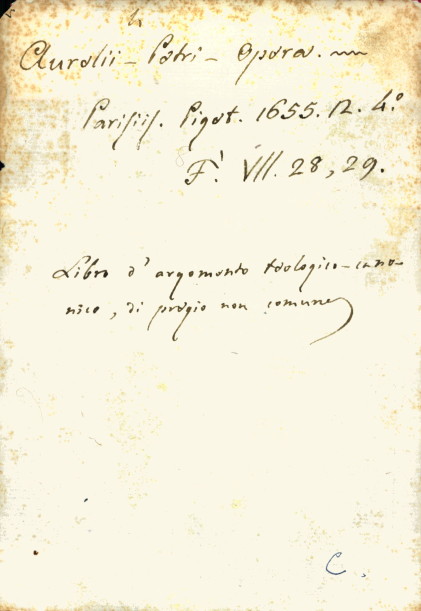 Aurelii – Petri – Opera.
Parisiis. Piget. 1655. 12. 4.º
F. VII. 28, 29.
Libro d'argomento teologico-cano-
nico, di pregio non comune
C.